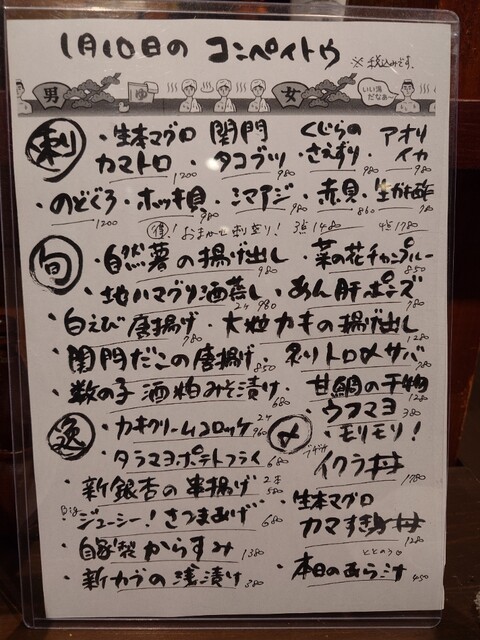 1月10日の コンペイトウ
※税込みです。
男 ゆ 女 いい湯だなぁ〜
刺 ・生本マグロ カマトロ 1200
関門 ・タコブツ 980
くじらの ・さえずり 980
アオリイカ 980
・のどぐろ 1200 ・ホッキ貝 980 ・シマアジ 980 ・赤貝 860 ・生ガキ酢
得! おまかせ刺盛り! 3点1480 4点1780
旬 ・自然薯の揚げ出し 980 ・菜の花チャンプルー 850
・地ハマグリ酒蒸し 2ヶ 980 ・あん肝ポン酢 780
・白えび唐揚げ 780 ・大粒カキの揚げ出し 1280
・関門だこの唐揚げ 850 ・炙りトロ〆サバ 780
・数の子 酒粕みそ漬け 680 ・甘鯛の干物 1280
・ウフマヨ 380
逸 ・カキクリームコロッケ 2ヶ 960
・タラマヨポテトフライ 680
・新銀杏の串揚げ 2本 580
・Big ジューシー!さつまあげ 680
・自家製 からすみ 1380
・新カブの浅漬け 380
〆 ・モリモリ!
イクラ丼 1780
・生本マグロ
カマすき身丼 1280
・本日のあら汁 450